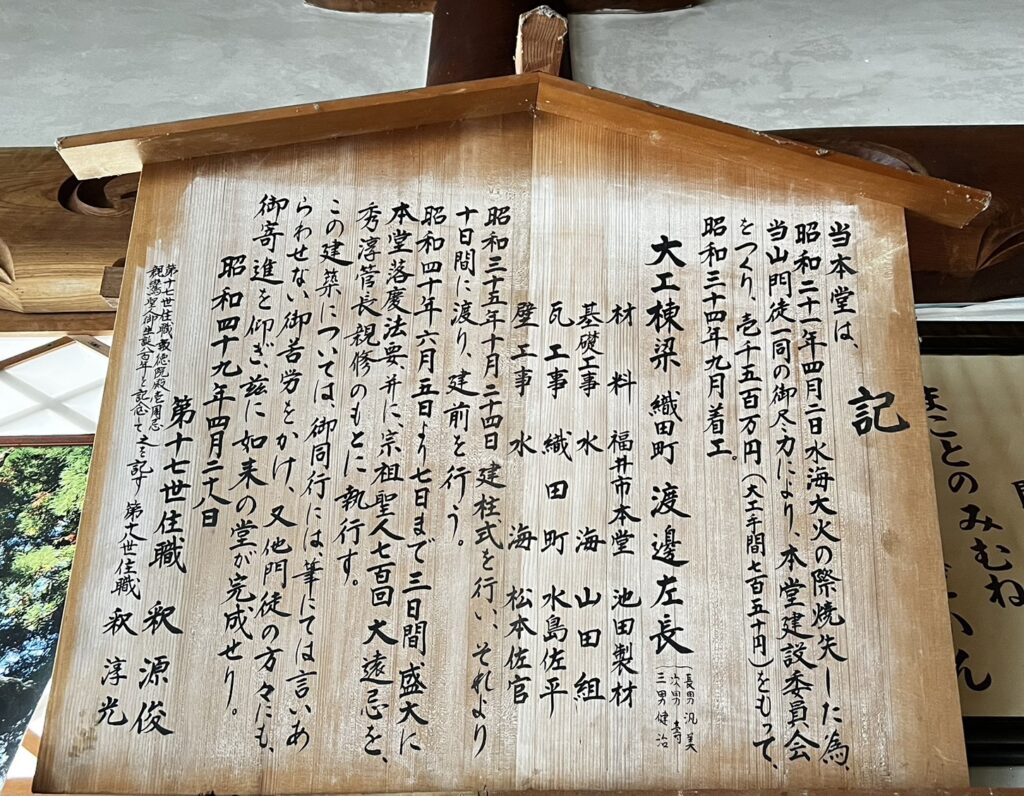 記
当本堂は、
昭和二十一年四月二日水海大火の際焼失した為、
当山門徒一同の御尽力により、本堂建設委員会
をつくり、壱千五百万円(大工手間七百五十円)をもって、
昭和三十四年九月着工。
大工棟梁 織田町 渡邊左長
長男 汎美
次男 壽
三男 健治
材料 福井市本堂 池田製材
基礎工事 水海 山田組
瓦工事 織田町 水島佐平
壁工事 水海 松本佐官
昭和三十五年十月二十四日建柱式を行い、それより
十日間に渡り、建前を行う。
昭和四十年六月五日より七日まで三日間盛大に
本堂落慶法要、并に、宗祖聖人七百回大遠忌を、
秀淳管長親修のもとに執行す。
この建築については、御同行には筆にては言いあ
らわせない御苦労をかけ、又他門徒の方々にも、
御寄進を仰ぎ、玆に如来の堂が完成せり。
昭和四十九年四月二十八日
第十七世住職 釈 源俊
第十七世住職
親鸞聖人御生誕八百年を記念して之を記す 第十八世住職 釈 淳光
まことのみむね